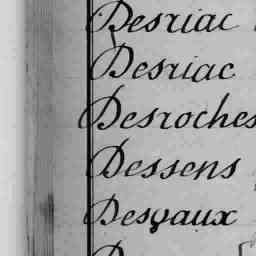 Desriac
Desriac
Desroches
Dessens
Desvaux